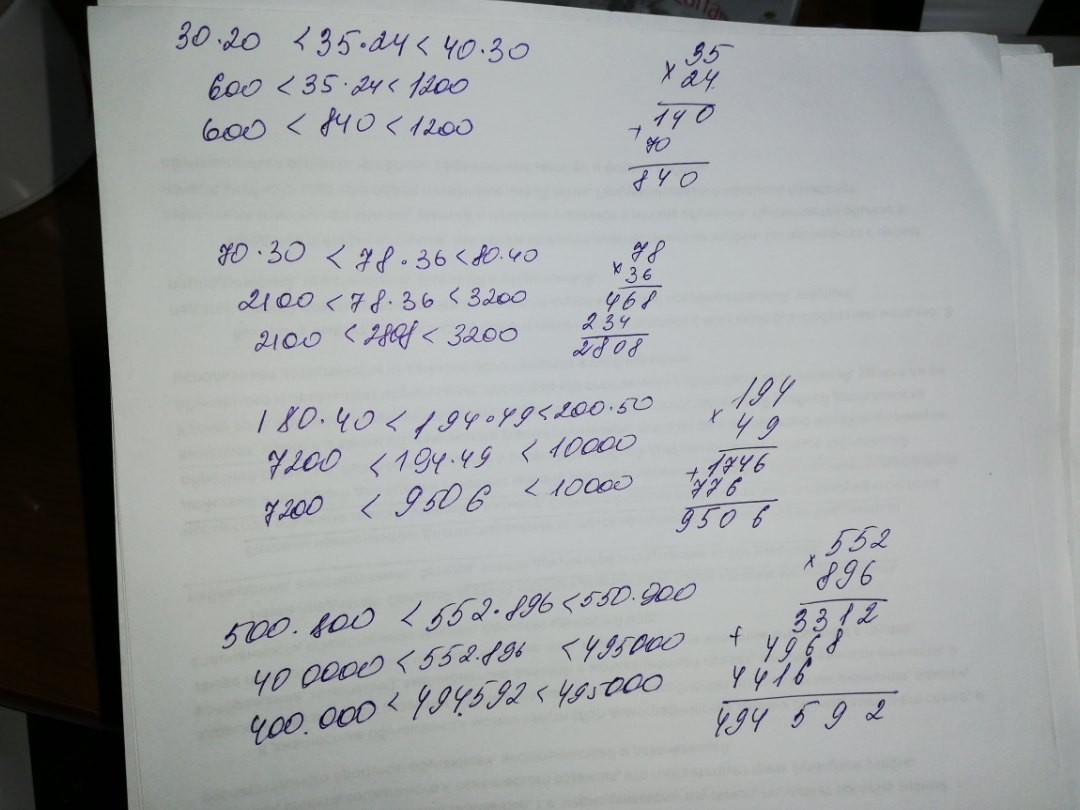 30·20 < 35·24 < 40·30
600 < 35·24 < 1200
600 < 840 < 1200
35
× 24
140
+ 70
840
70·30 < 78·36 < 80·40
2100 < 78·36 < 3200
2100 < 2808 < 3200
78
× 36
468
234
2808
180·40 < 194·49 < 200·50
7200 < 194·49 < 10000
7200 < 9506 < 10000
194
× 49
+ 1746
776
9506
500·800 < 552·896 < 550·900
400000 < 552·896 < 495000
400.000 < 494.592 < 495000
552
× 896
3312
+ 4968
4416
494592